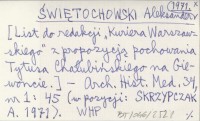 1971.
ŚWIĘTOCHOWSKI Aleksander
[List do redakcji „Kuriera Warszaw-
skiego" z propozycją pochowania
Tytusa Chałubińskiego na Gie-
woncie.] — Arch. Hist. Med. 34,
nr 1: 45 (w pozycji: SKRZYPCZAK
A. 1971). WHP